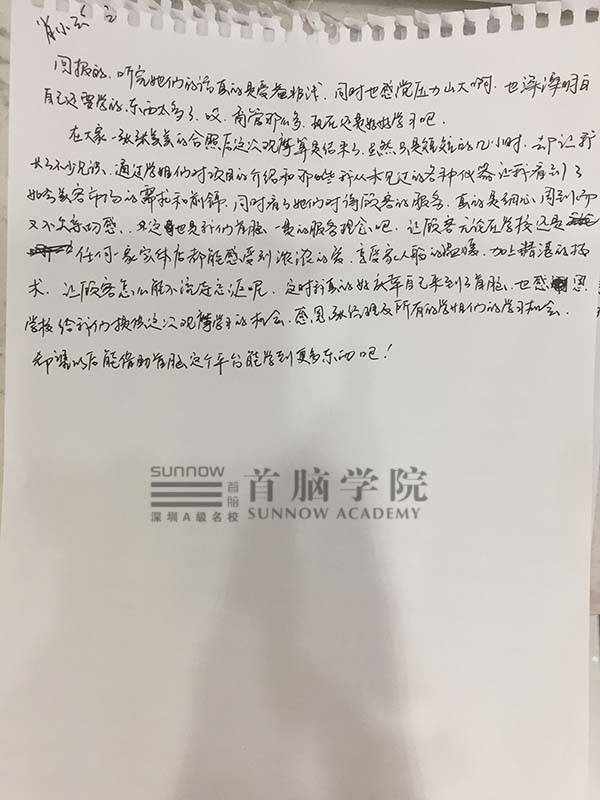 肖小云 2
回报的。听完她们的话真的是受益非浅。同时也感觉压力山大啊。也深深明白
自己还要学的东西太多了。哎，甭管那么多，现在还是好好学习吧。
在大家一张张美美的合照后这次观摩算是结束了。虽然只是短短的几小时，却让我
长了不少见识。通过学姐们对项目的介绍和那些我从未见过的各种仪器让我看到了
如今美容市场的需求和前景。同时看了她们对待顾客的服务，真的是细心、周到而
又不失亲切感。这也是我们首脑一贯的服务理念吧。让顾客无论在学校还是
任何一家实体店都能感受到浓浓的爱，享受家人般的温暖，加上精湛的技
术，让顾客怎么能不流连忘返呢。这时我真的好庆幸自己来到了首脑。也感恩
学校给我们提供这次观摩学习的机会。感恩张经理及所有的学姐们的学习机会。
希望以后能借助首脑这个平台能学到更多东西吧！
SUNNOW 首脑
深圳A级名校
首脑学院
SUNNOW ACADEMY